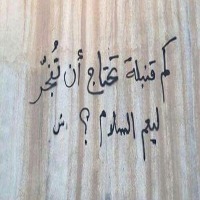 كم قنبلة تحتاج أن تُفجَّر
ليعم السلام ؟ س